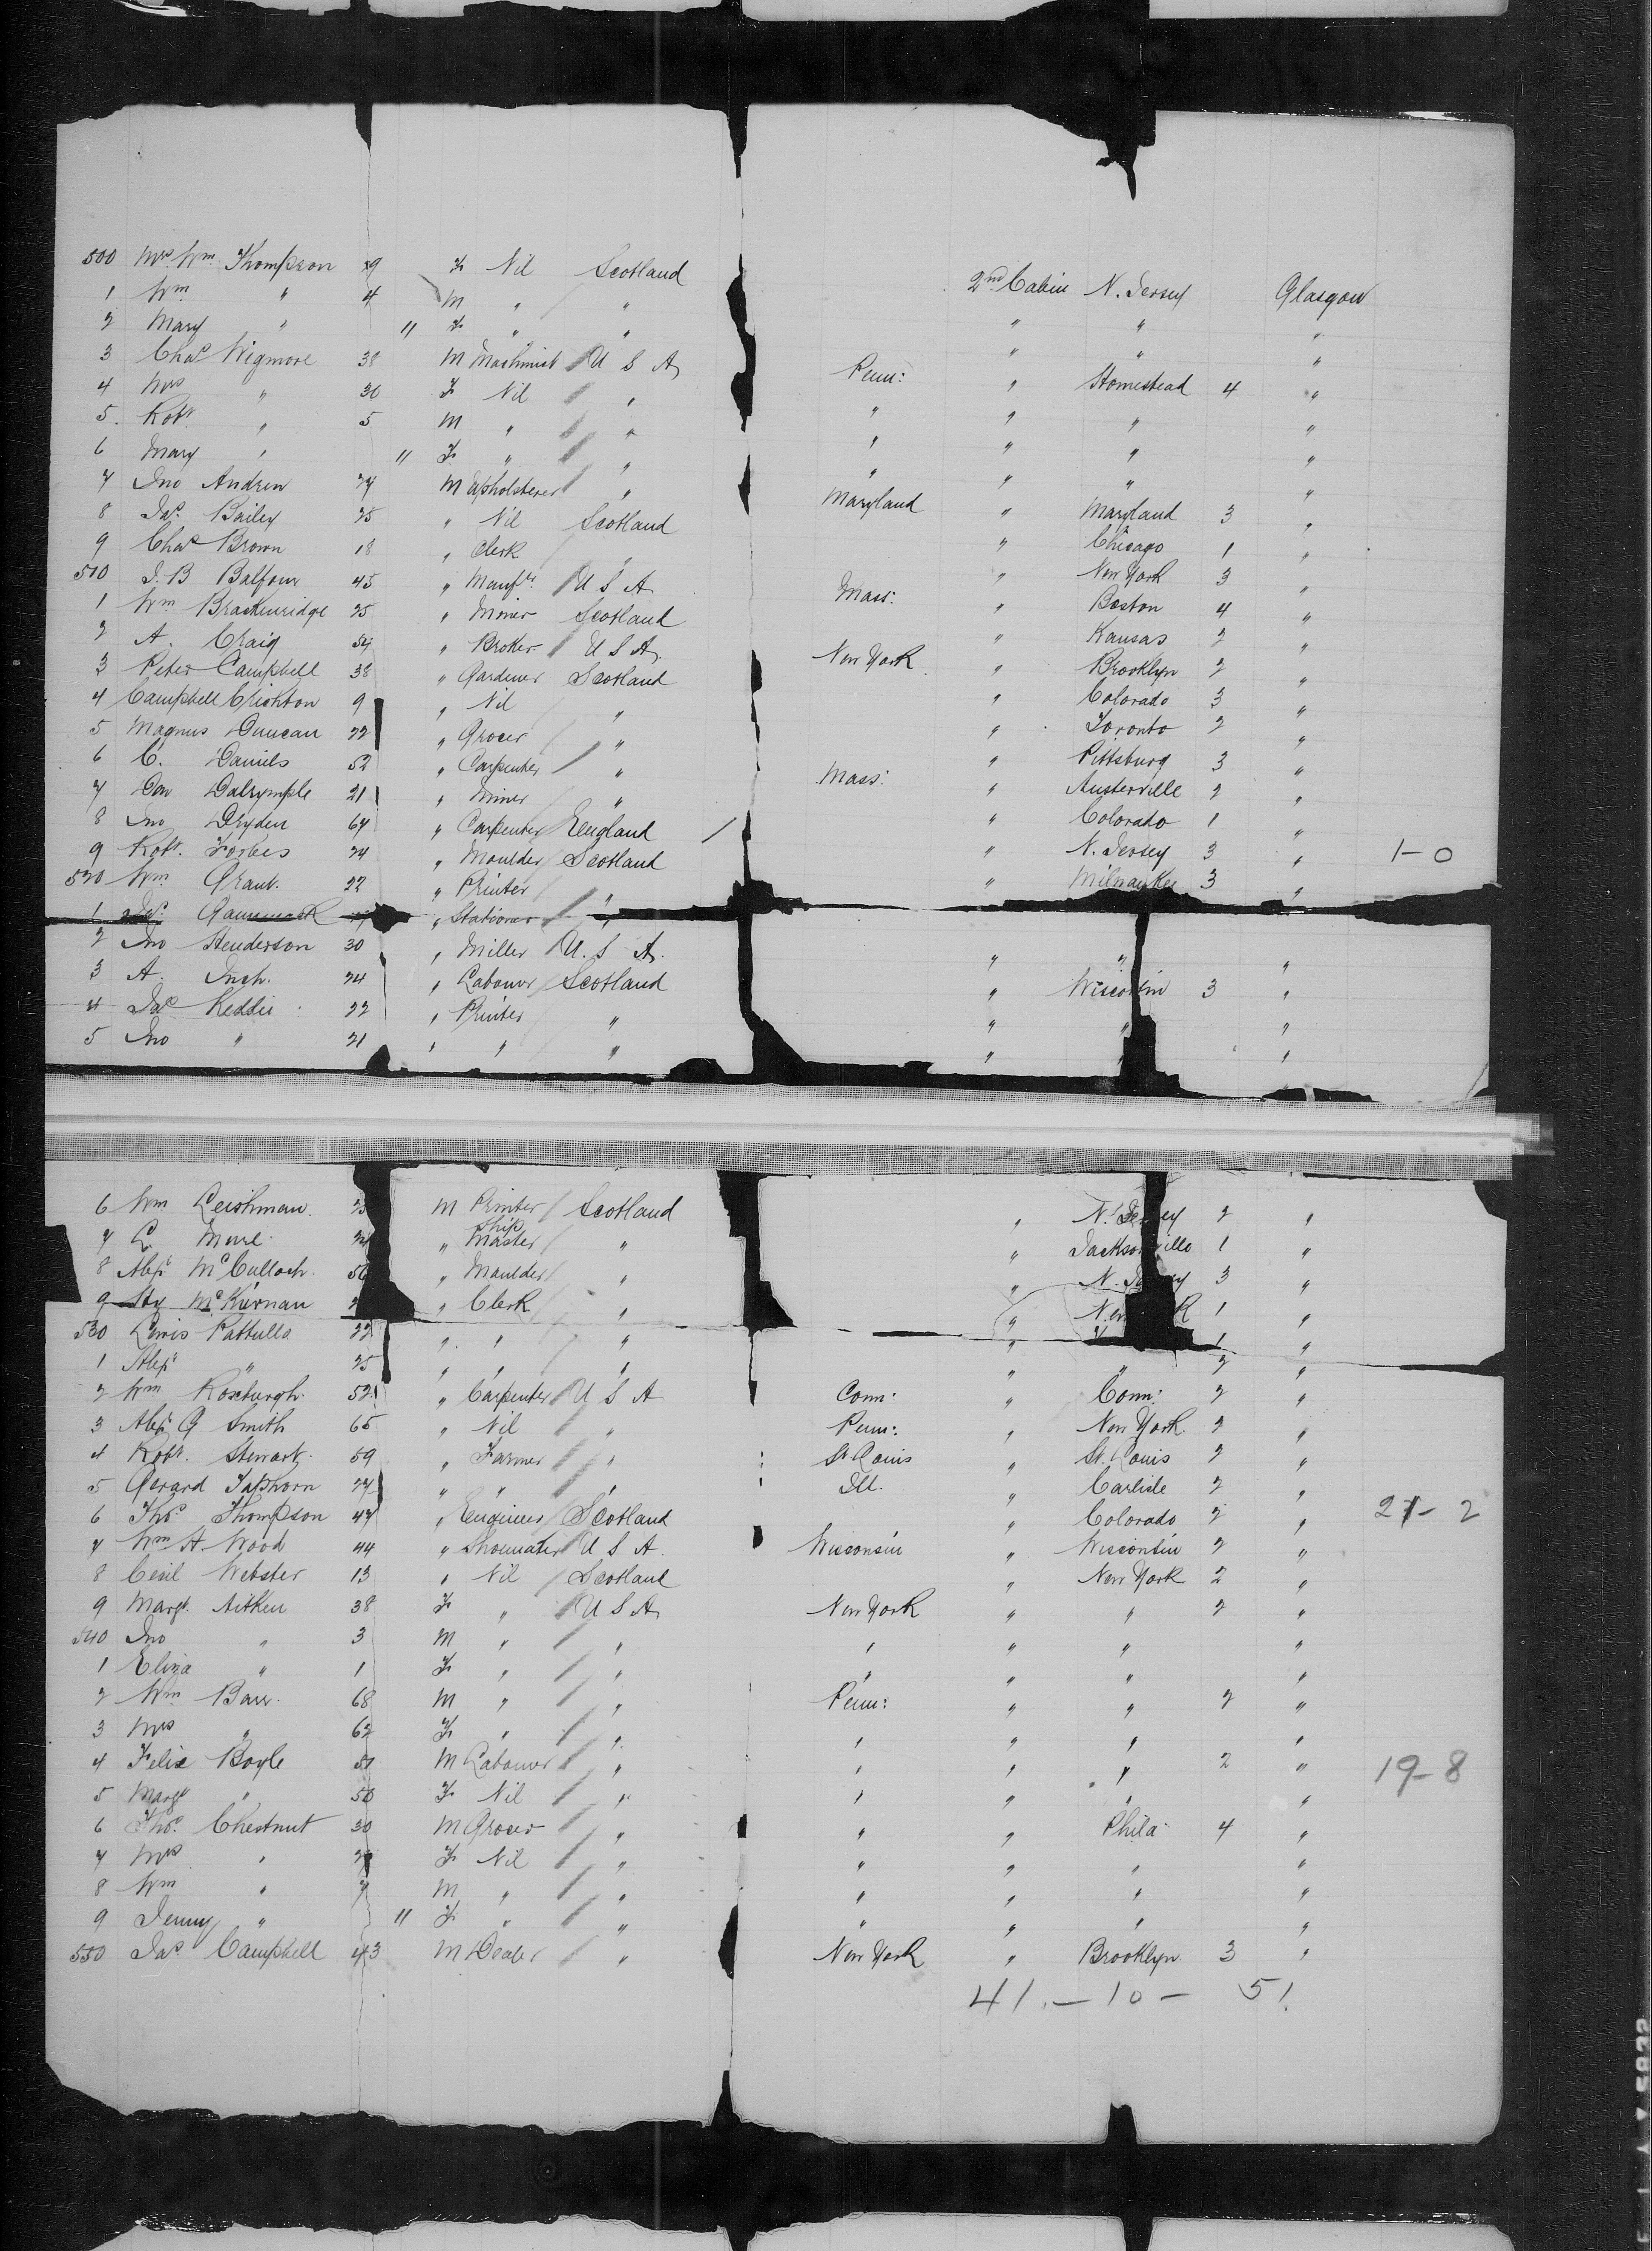 500 Mrs Wm Thompson 29 F Nil Scotland 2nd Cabin N. Jersey Glasgow
1 Wm " 4 M " " " " "
2 Mary " 11 F " " " " "
3 Chas Wigmore 38 M Machinist U S A Penn: " Homestead 4 "
4 Mrs " 30 F Nil " " " " "
5 Robt " 5 M " " " " " "
6 Mary " 11 F " " " " " "
7 Jno Andrew 24 M Upholsterer " Maryland " Maryland 3 "
8 Jas. Bailey 25 " Nil Scotland " Chicago 1 "
9 Chas Brown 18 " Clerk " " New York 3 "
510 J. B Balfour 45 " Manufr U S A Mass: " Boston 4 "
1 Wm Brackenridge 25 " Miner Scotland " Kansas 2 "
2 A. Craig 54 " Broker U S A. New York " Brooklyn 2 "
3 Peter Campbell 38 " Gardener Scotland " Colorado 3 "
4 Campbell Crichton 9 " Nil " " Toronto 2 "
5 Magnus Duncan 22 " Grocer " " Pittsburg 3 "
6 C. Daniels 52 " Carpenter " Mass: " Austerville 2 "
7 Dav Dalrymple 21 " Miner " " Colorado 1 "
8 Jno Dryden 64 " Carpenter England " N. Jersey 3 " 1-0
9 Robt. Forbes 24 " Moulder Scotland " Milwaukee 3 "
520 Wm Grant. 22 " Printer "
1 Jas. " Stationer "
2 Jno Henderson 30 " Miller U. S A. " " "
3 A. Inch. 24 " Labourer Scotland " Wisconsin 3 "
4 Jas Keddie 22 " Printer " " " "
5 Jno " 21 " " " " " "
6 Wm Leishman. M Printer Scotland " N. Jersey 2 "
7 Ship Master " " Jacksonville 1 "
8 Alexr McCulloch. " Moulder " " N. Jersey 3 "
9 McKiernan " Clerk " " 1 "
530 Lewis Pattullo 22 " " " " 1 "
1 Alexr " 25 " " " " " 2 "
2 Wm Roxburgh. 52 " Carpenter U S A Conn: " Conn: 2 "
3 Alexr G Smith 65 " Nil " Penn: " New York. 2 "
4 Robt. Stewart. 59 " Farmer " St Louis " St. Louis 2 "
5 Gerard Taphorn " " " Ill. " Carlisle 2 "
6 Thos. Thompson 47 " Engineer Scotland " Colorado 2 " 21-2
7 Wm H Wood 44 " Shoemaker U S A. Wisconsin " Wisconsin 2 "
8 Cecil Webster 13 " Nil Scotland " New York 2 "
9 Margt. Aitken 38 F " U S A New York " " 2 "
540 Jno " 3 M " " " " " "
1 Eliza " 1 F " " " " " "
2 Wm Barr. 68 M " " Penn: " " 2 "
3 Mrs " 62 F " " " " " "
4 Felix Boyle 51 M Labourer " " " " 2 " 19-8
5 Margt " 50 F Nil " " " " "
6 Thos. Chestnut 30 M Grocer " " " Phila. 4 "
7 Mrs " F Nil " " " " "
8 Wm " 7 M " " " " " "
9 Jenny " 11 F " " " " " "
550 Jas Campbell 43 M Dealer " New York " Brooklyn 3 "
41.-10- 51.